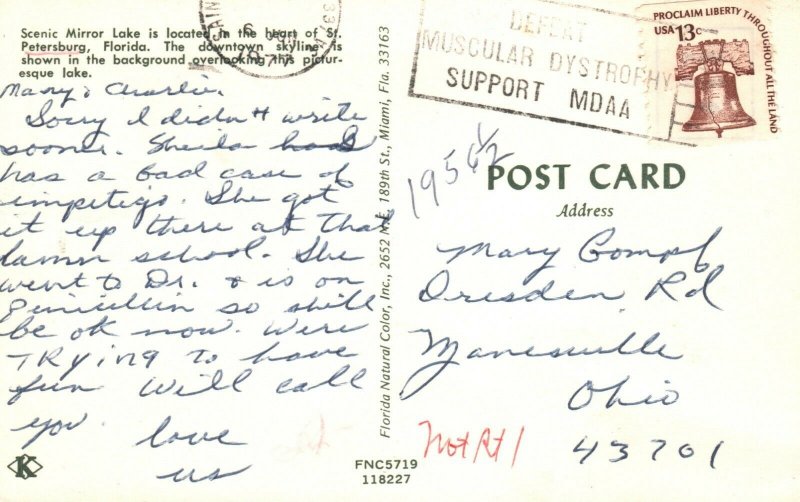 Scenic Mirror Lake is located in the heart of St.
Petersburg, Florida. The downtown skyline is
shown in the background overlooking this pictur-
esque lake.
Mary & Charlie.
Sorry I didn't write
sooner. Sheila had
has a bad case of
impetigo. She got
it up there at that
damn school. She
went to Dr. & is on
penicillin so shill
be ok now. Were
TRying To have
fun will call
you.
love
us
K
Florida Natural Color, Inc., 2652 N.E. 189th St., Miami, Fla. 33163
DEFEAT
MUSCULAR DYSTROPHY
SUPPORT MDAA
PROCLAIM LIBERTY THROUGHOUT ALL THE LAND
USA 13c
1956½
POST CARD
Address
Mary Gompf
Dresden Rd
Zanesville
Ohio
43701
Not Rt 1
FNC5719
118227